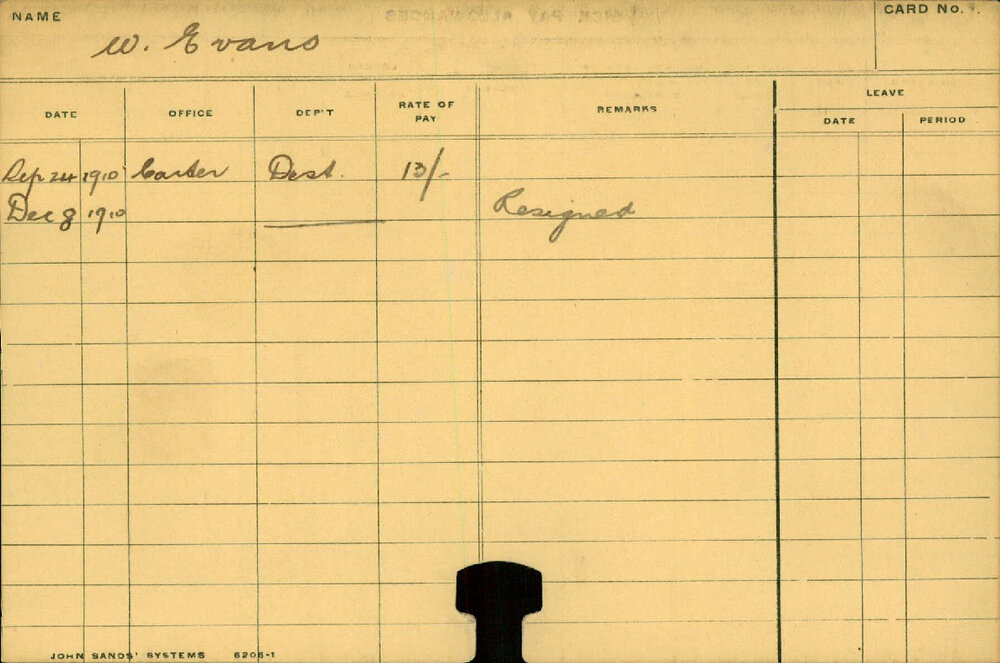 NAME
W. Evans
CARD No.
DATE OFFICE DEP'T RATE OF PAY REMARKS LEAVE
DATE PERIOD
Sep 24 1910 Carter Dest. 13/-
Dec 8 1910 Resigned
JOHN SANDS' SYSTEMS 6206-1